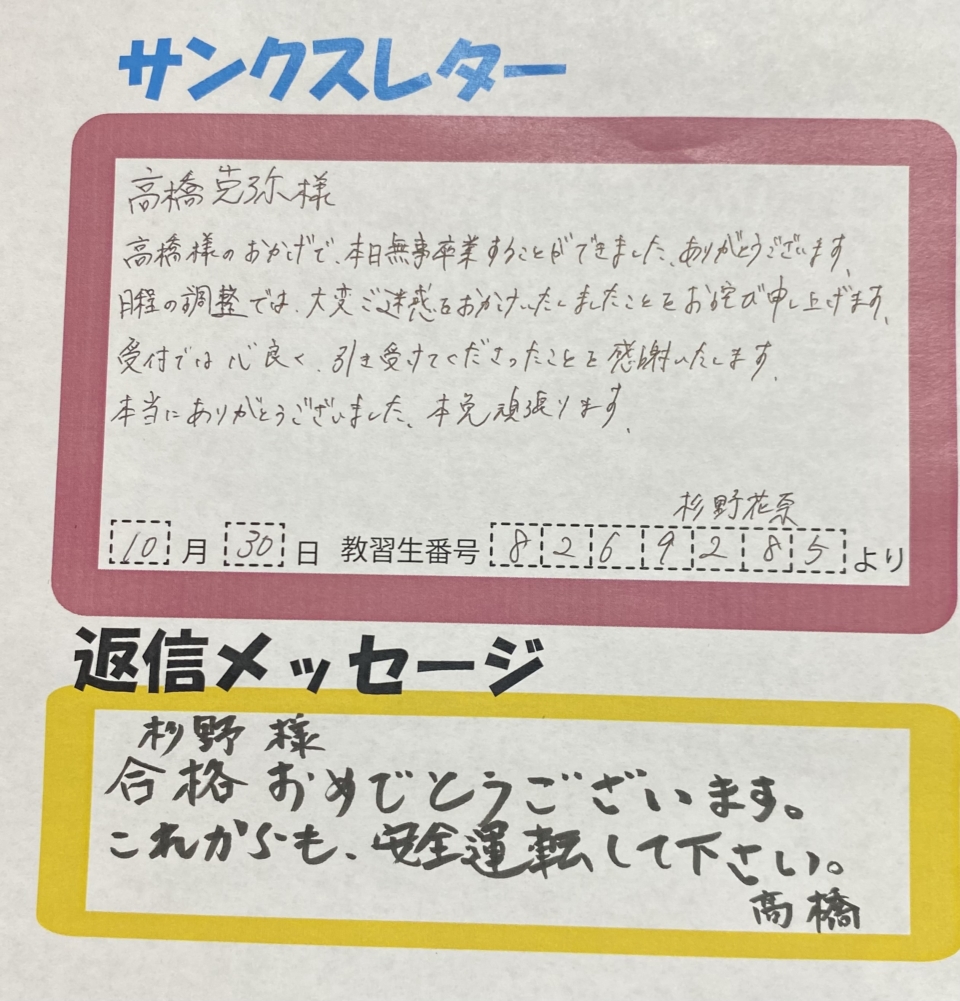 サンクスレター
高橋克弥様
高橋様のおかげで、本日無事卒業することができました、ありがとうございます、
日程の調整では、大変ご迷惑をおかけいたしましたことをお詫び申し上げます、
受付では心良く、引き受けてくださったことを感謝いたします、
本当にありがとうございました、本免頑張ります、
杉野花奈
10月30日 教習生番号 8269285より
返信メッセージ
杉野様
合格おめでとうございます。
これからも、安全運転して下さい。
高橋